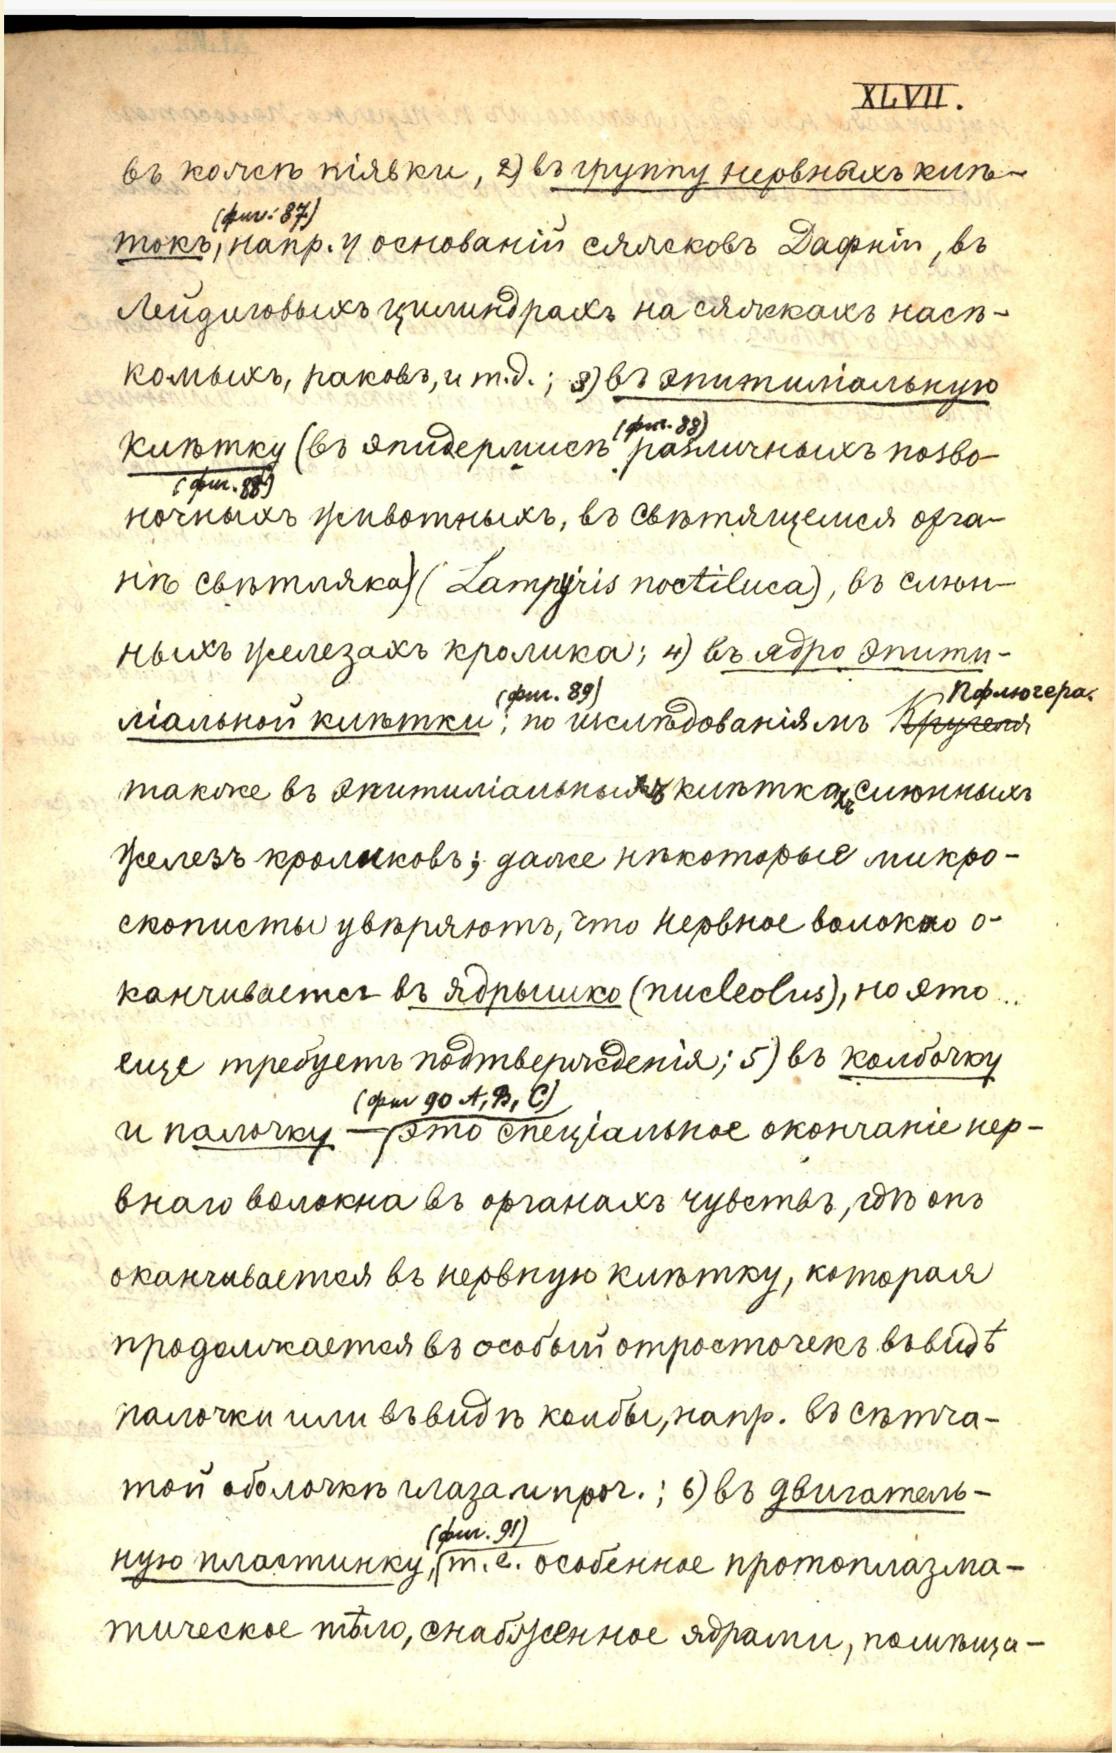 XLVII.
въ кожѣ піявки, 2) въ группу нервныхъ клѣ-
(фиг. 87)
токъ, напр. у основаній сяжковъ Дафніи, въ
Лейдиговыхъ цилиндрахъ на сяжкахъ насѣ-
комыхъ, раковъ, и т.д.; 3) въ эпителіальную
(фиг. 88)
клѣтку (въ эпидермисѣ различныхъ позво-
(фиг. 88)
ночныхъ животныхъ, въ свѣтящемся орга-
нѣ свѣтляка) (Lampyris noctiluca), въ слюн-
ныхъ железахъ кролика; 4) въ ядро эпите-
(фиг. 89) Пфлюгера.
ліальной клѣтки; по изслѣдованіямъ
также въ эпителіальныхъ клѣткахъ слюнныхъ
железъ кроликовъ; даже нѣкоторые микро-
скописты увѣряютъ, что нервное волокно о-
канчивается въ ядрышко (nucleolus), но это
еще требуетъ подтвержденія; 5) въ колбочку
(фиг 90 A, B, C)
и палочку — это спеціальное окончаніе нер-
внаго волокна въ органахъ чувствъ, гдѣ онъ
оканчивается въ нервную клѣтку, которая
продолжается въ особый отросточекъ въ видѣ
палочки или въ видѣ колбы, напр. въ сѣтча-
той оболочкѣ глаза и проч.; 6) въ двигатель-
(фиг. 91)
ную пластинку, т.е. особенное протоплазма-
тическое тѣло, снабженное ядрами, помѣща-